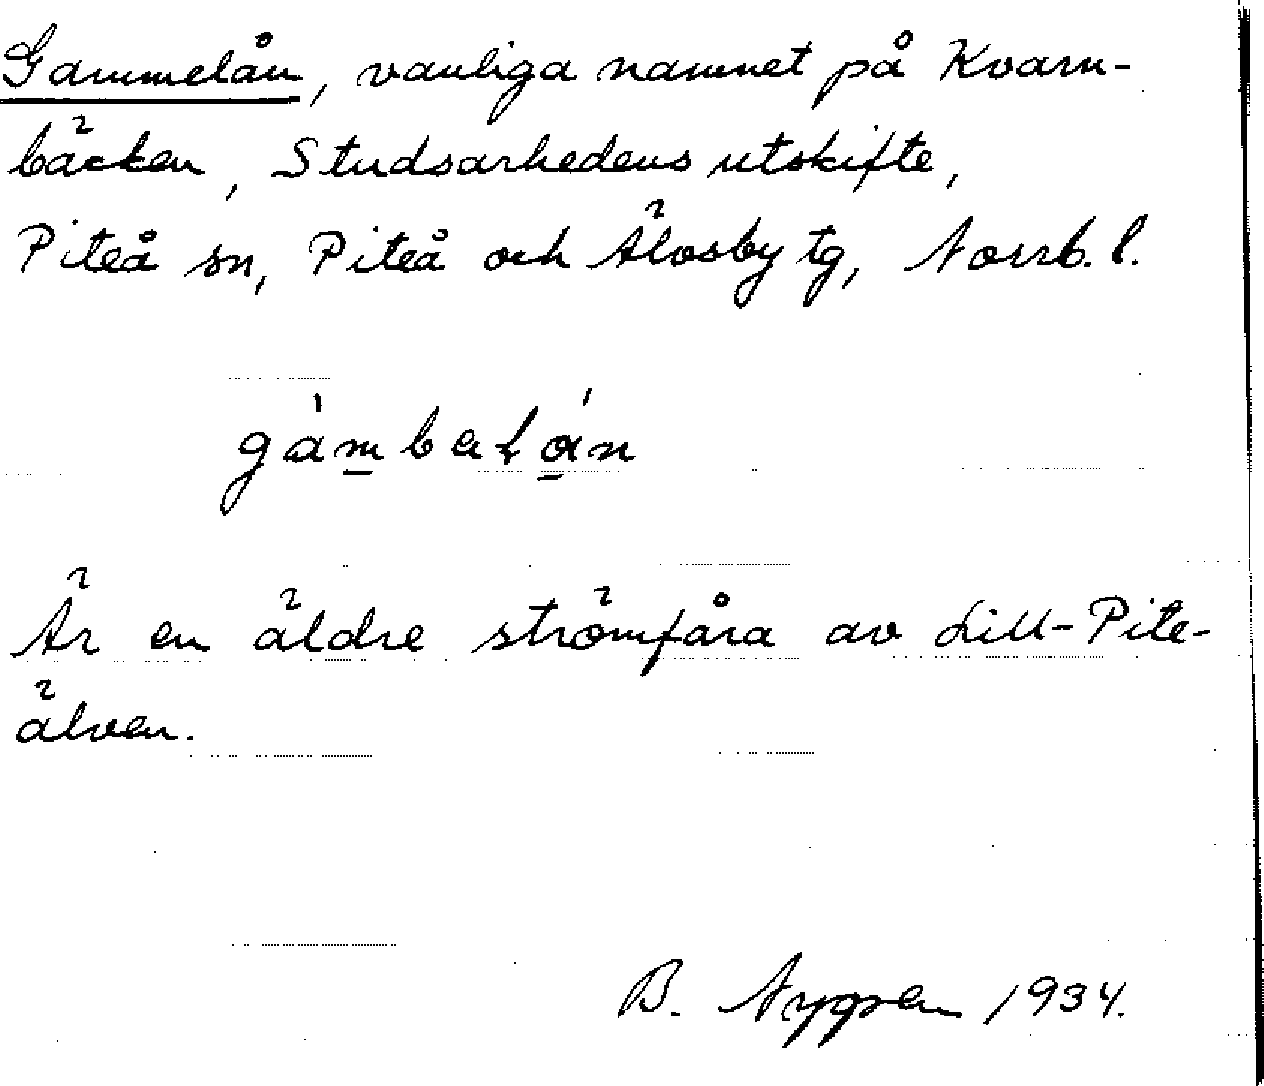 Gammelån, vanliga namnet på Kvarn-
bäcken, Studsarhedens utskifte,
Piteå sn, Piteå och Älvsby tg, Norrb. l.
Är en äldre strömfåra av Lill-Pite-
älven.
B. Nygren 1934.